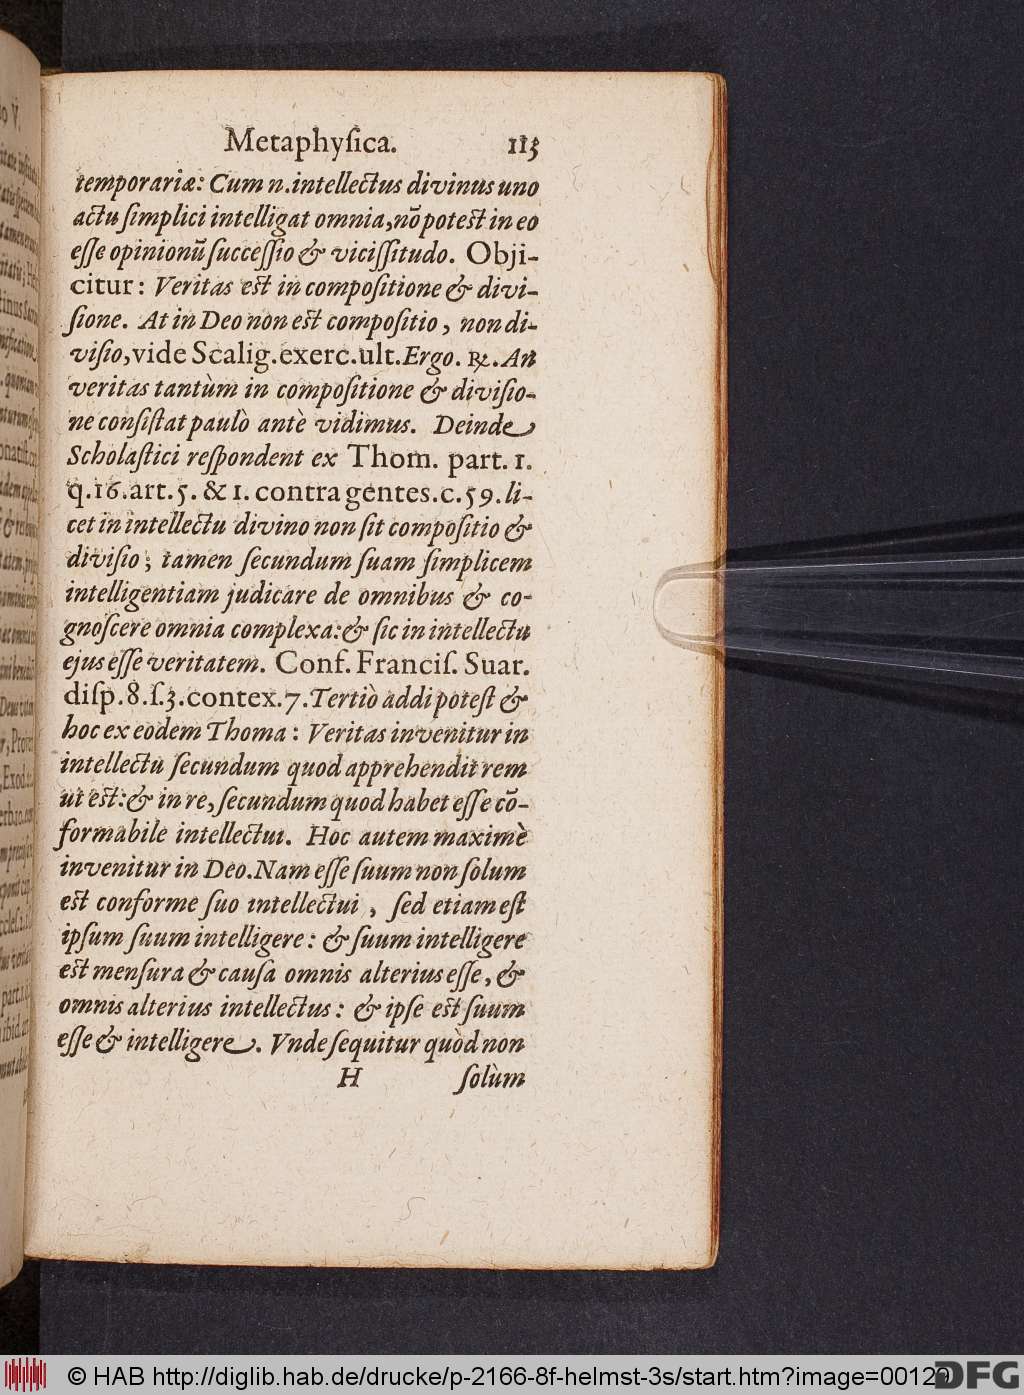 Metaphyſica. 113
temporariæ: Cum n. intellectus divinus uno
actu ſimplici intelligat omnia, nō poteſt in eo
eſſe opinionū ſucceſſio & viciſſitudo. Obji-
citur: Veritas eſt in compoſitione & divi-
ſione. At in Deo non eſt compoſitio, non di-
viſio, vide Scalig. exerc. ult. Ergo. ℞. An
veritas tantùm in compoſitione & diviſio-
ne conſiſtat paulò antè vidimus. Deinde
Scholaſtici reſpondent ex Thom. part. 1.
q. 16. art. 5. & 1. contra gentes. c. 59. li-
cet in intellectu divino non ſit compoſitio &
diviſio; tamen ſecundum ſuam ſimplicem
intelligentiam judicare de omnibus & co-
gnoſcere omnia complexa: & ſic in intellectu
ejus eſſe veritatem. Conf. Franciſ. Suar.
diſp. 8. ſ. 3. contex. 7. Tertiò addi poteſt &
hoc ex eodem Thoma: Veritas invenitur in
intellectu ſecundum quod apprehendit rem
ut eſt: & in re, ſecundum quod habet eſſe cō-
formabile intellectui. Hoc autem maximè
invenitur in Deo. Nam eſſe ſuum non ſolum
eſt conforme ſuo intellectui, ſed etiam eſt
ipſum ſuum intelligere: & ſuum intelligere
eſt menſura & cauſa omnis alterius eſſe, &
omnis alterius intellectus: & ipſe eſt ſuum
eſſe & intelligere. Vnde ſequitur quòd non
H ſolùm
© HAB http://diglib.hab.de/drucke/p-2166-8f-helmst-3s/start.htm?image=00129
DFG